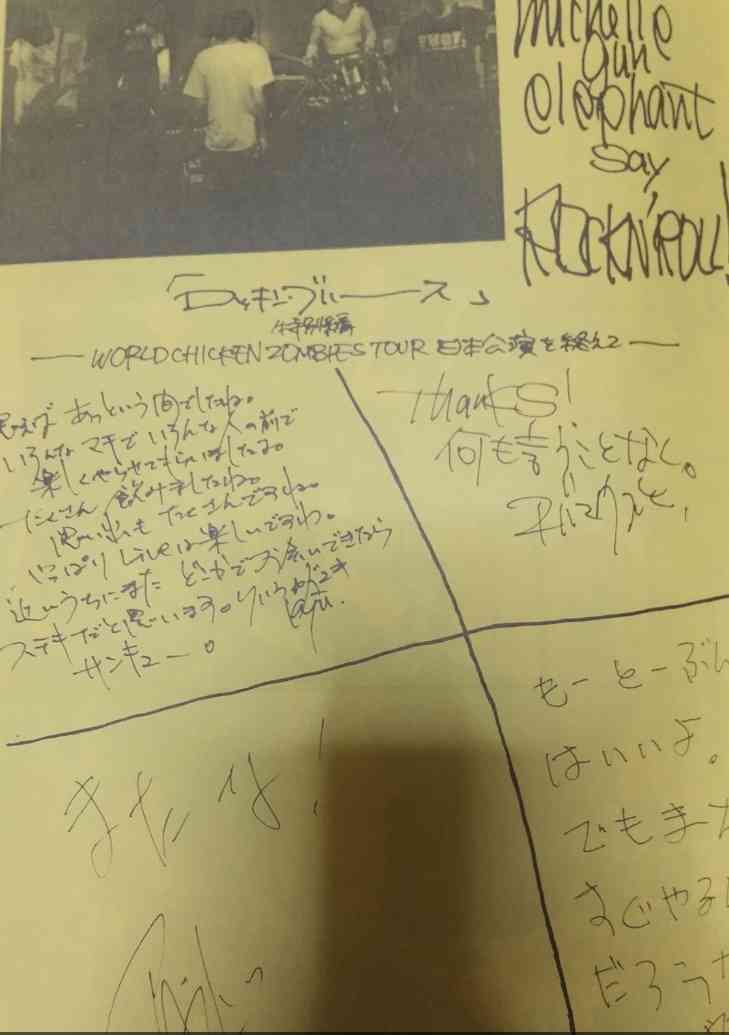 michelle
gun
elephant
say
ROCK'N'ROLL!
「ロッキン・ブルース」
特別編
WORLD CHICKEN ZOMBIES TOUR 日本公演を終えて
思えば あっという間でしたね。
いろんな マチで いろんな人の前で
楽しくやらせてもらいましたよ。
たくさん 飲みましたね。
思い出も たくさんですね。
やっぱり Liveは楽しいですね。
近いうちにまた どこかでお会いできたら
ステキだと思います。
サンキュー。
Thanks!
何も言うことなし。
またな!
もーとーぶん
はいいよ。
でもまた
すぐやる
だろうな